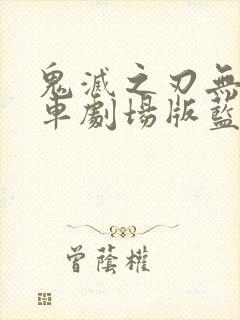 鬼滅之刃無
車劇場版藍
曾蔭權